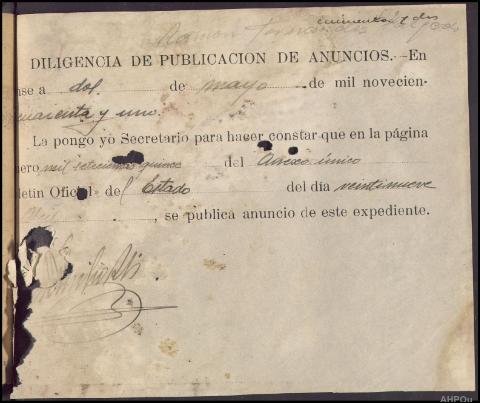 cuincuenta y dos
Ramon Fernandez
DILIGENCIA DE PUBLICACION DE ANUNCIOS.—En
nse a dos de mayo de mil novecien-
cuarenta y uno.
La pongo yo Secretario para hacer constar que en la página
nero mil setecientos quince del Anexo único
letín Oficial de l Estado del día veintinueve
, se publica anuncio de este expediente.
AHPOu